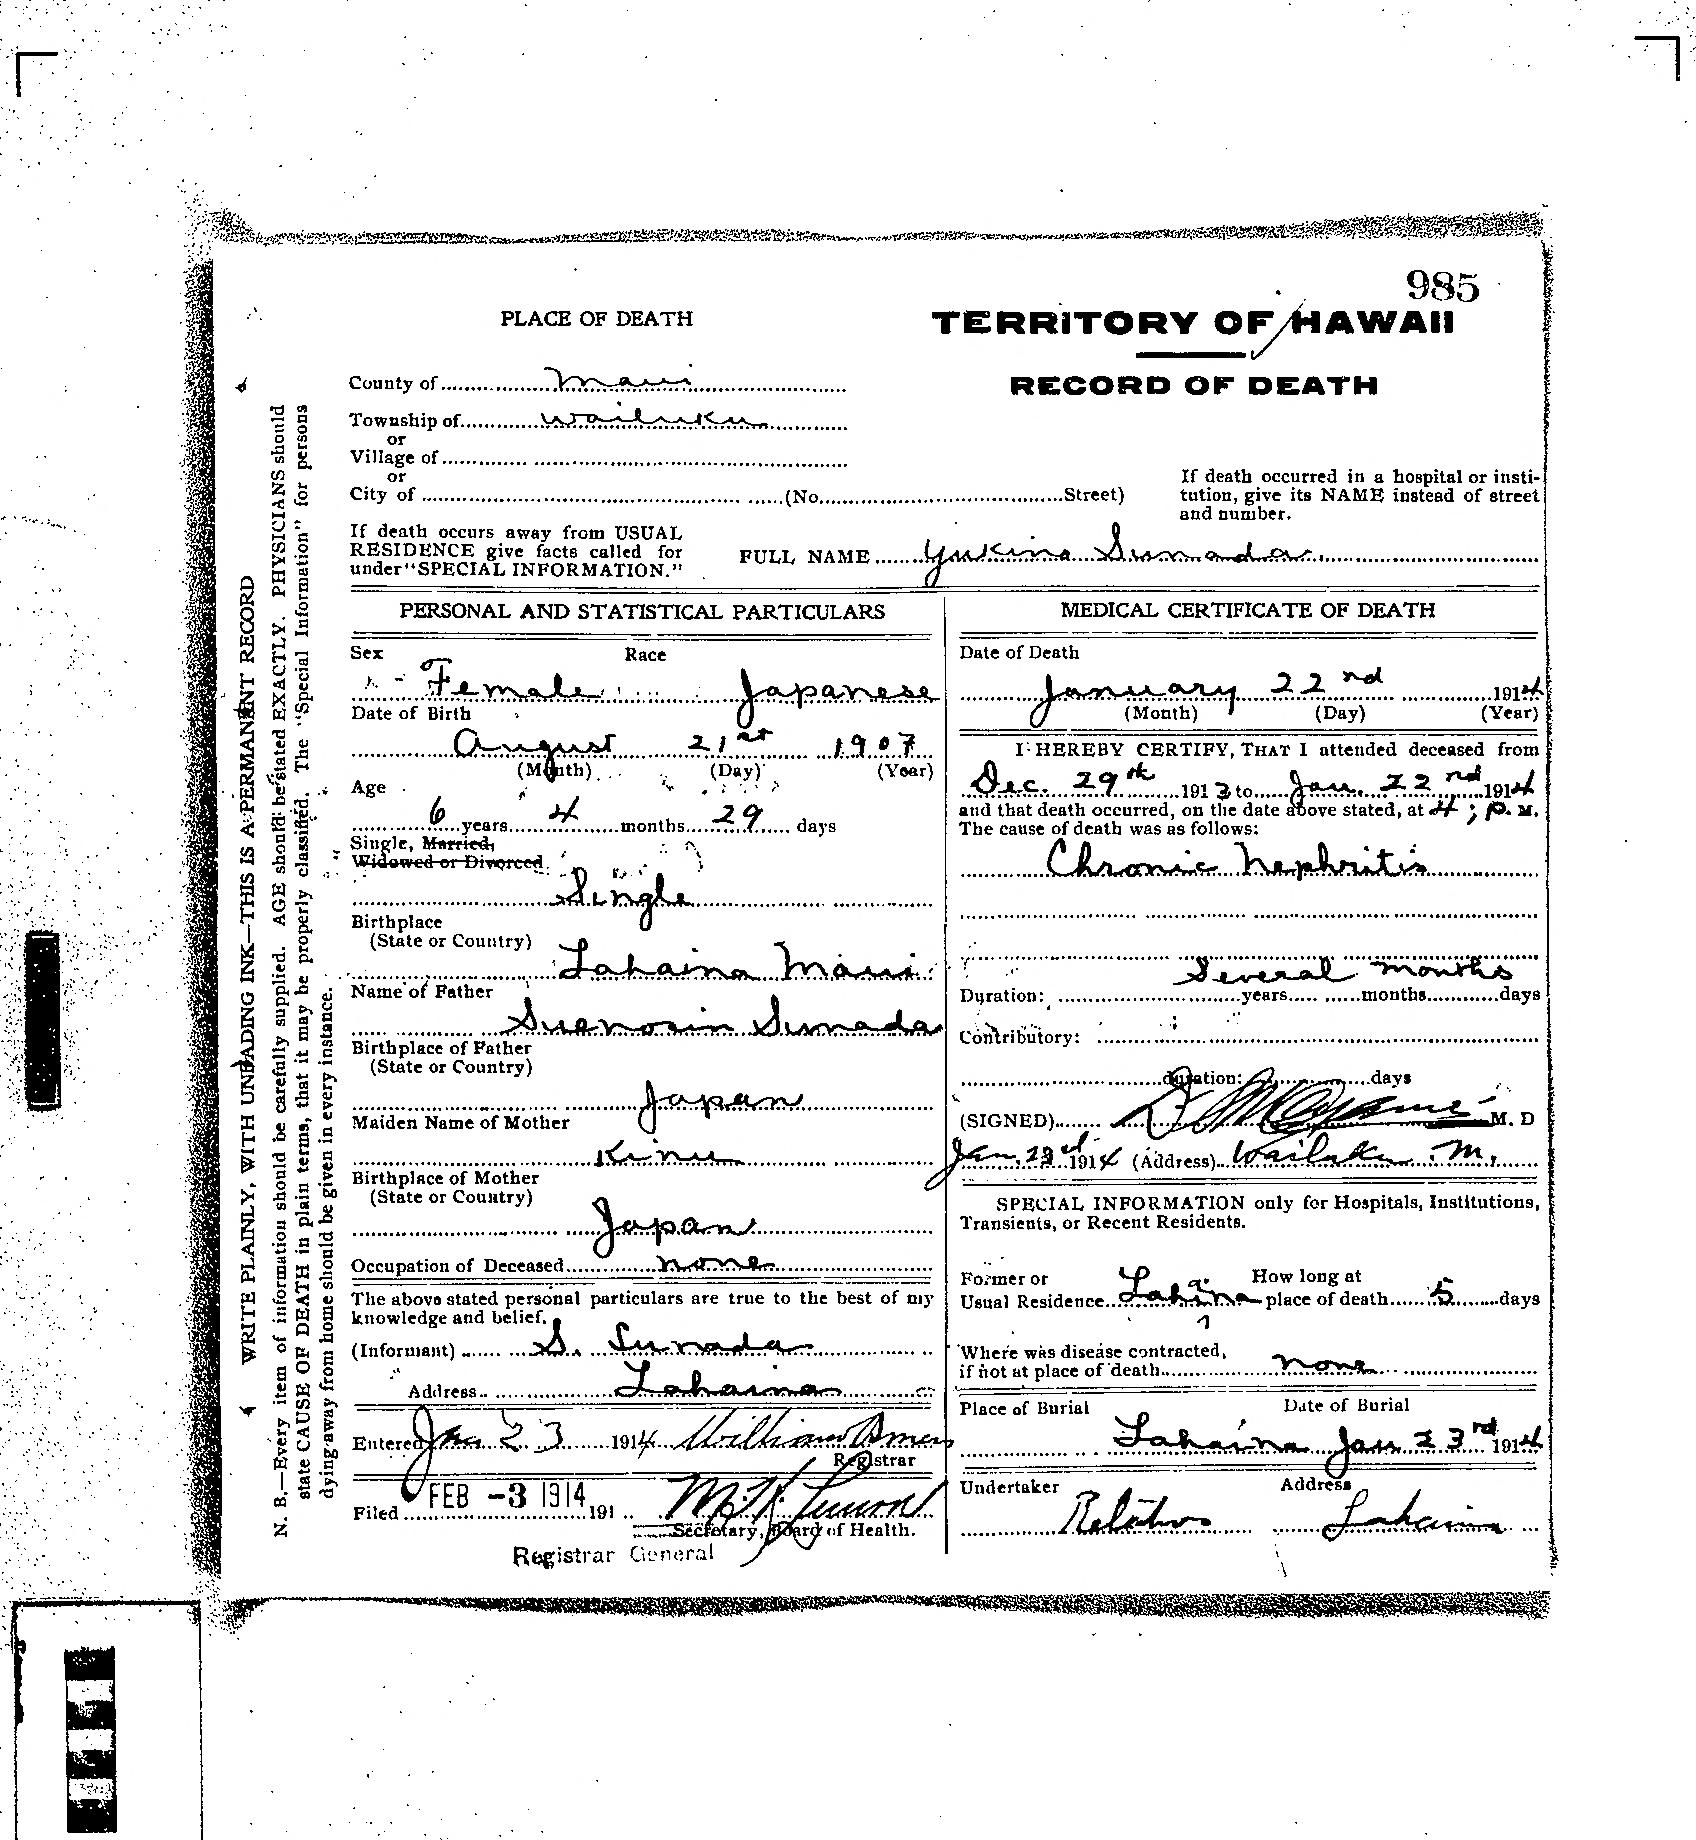 985
PLACE OF DEATH
TERRITORY OF HAWAII
RECORD OF DEATH
County of Maui
Township of Wailuku
or
Village of
or
City of (No. Street)
If death occurred in a hospital or insti-
tution, give its NAME instead of street
and number.
If death occurs away from USUAL
RESIDENCE give facts called for
under "SPECIAL INFORMATION."
FULL NAME Yukino Sunada
PERSONAL AND STATISTICAL PARTICULARS
Sex Race
Female Japanese
Date of Birth
August 21st 1907
(Month) (Day) (Year)
Age
6 years 4 months 29 days
Single, Married,
Widowed or Divorced
Single
Birthplace
(State or Country)
Lahaina Maui
Name of Father
Sunada
Birthplace of Father
(State or Country)
Japan
Maiden Name of Mother
Kinu
Birthplace of Mother
(State or Country)
Japan
Occupation of Deceased none
The above stated personal particulars are true to the best of my
knowledge and belief.
(Informant) S. Sunada
Address Lahaina
Entered Jan 23 1914 William
Registrar
Filed FEB -3 1914 191
Secretary, Board of Health.
Registrar General
MEDICAL CERTIFICATE OF DEATH
Date of Death
January 22nd 1914
(Month) (Day) (Year)
I HEREBY CERTIFY, THAT I attended deceased from
Dec. 29th 1913 to Jan. 22nd 1914
and that death occurred, on the date above stated, at 4; P. M.
The cause of death was as follows:
Chronic Nephritis
Several months
Duration: years months days
Contributory:
duration: days
(SIGNED) M. D
Jan. 23d 1914 (Address) Wailuku M.
SPECIAL INFORMATION only for Hospitals, Institutions,
Transients, or Recent Residents.
Former or How long at
Usual Residence Lahina place of death 5 days
a
Where was disease contracted,
if not at place of death none
Place of Burial Date of Burial
Lahaina Jan 23rd 1914
Undertaker Address
Relatives Lahaina
WRITE PLAINLY, WITH UNFADING INK—THIS IS A PERMANENT RECORD
N. B.—Every item of information should be carefully supplied. AGE should be stated EXACTLY. PHYSICIANS should
state CAUSE OF DEATH in plain terms, that it may be properly classified. The "Special Information" for persons
dying away from home should be given in every instance.